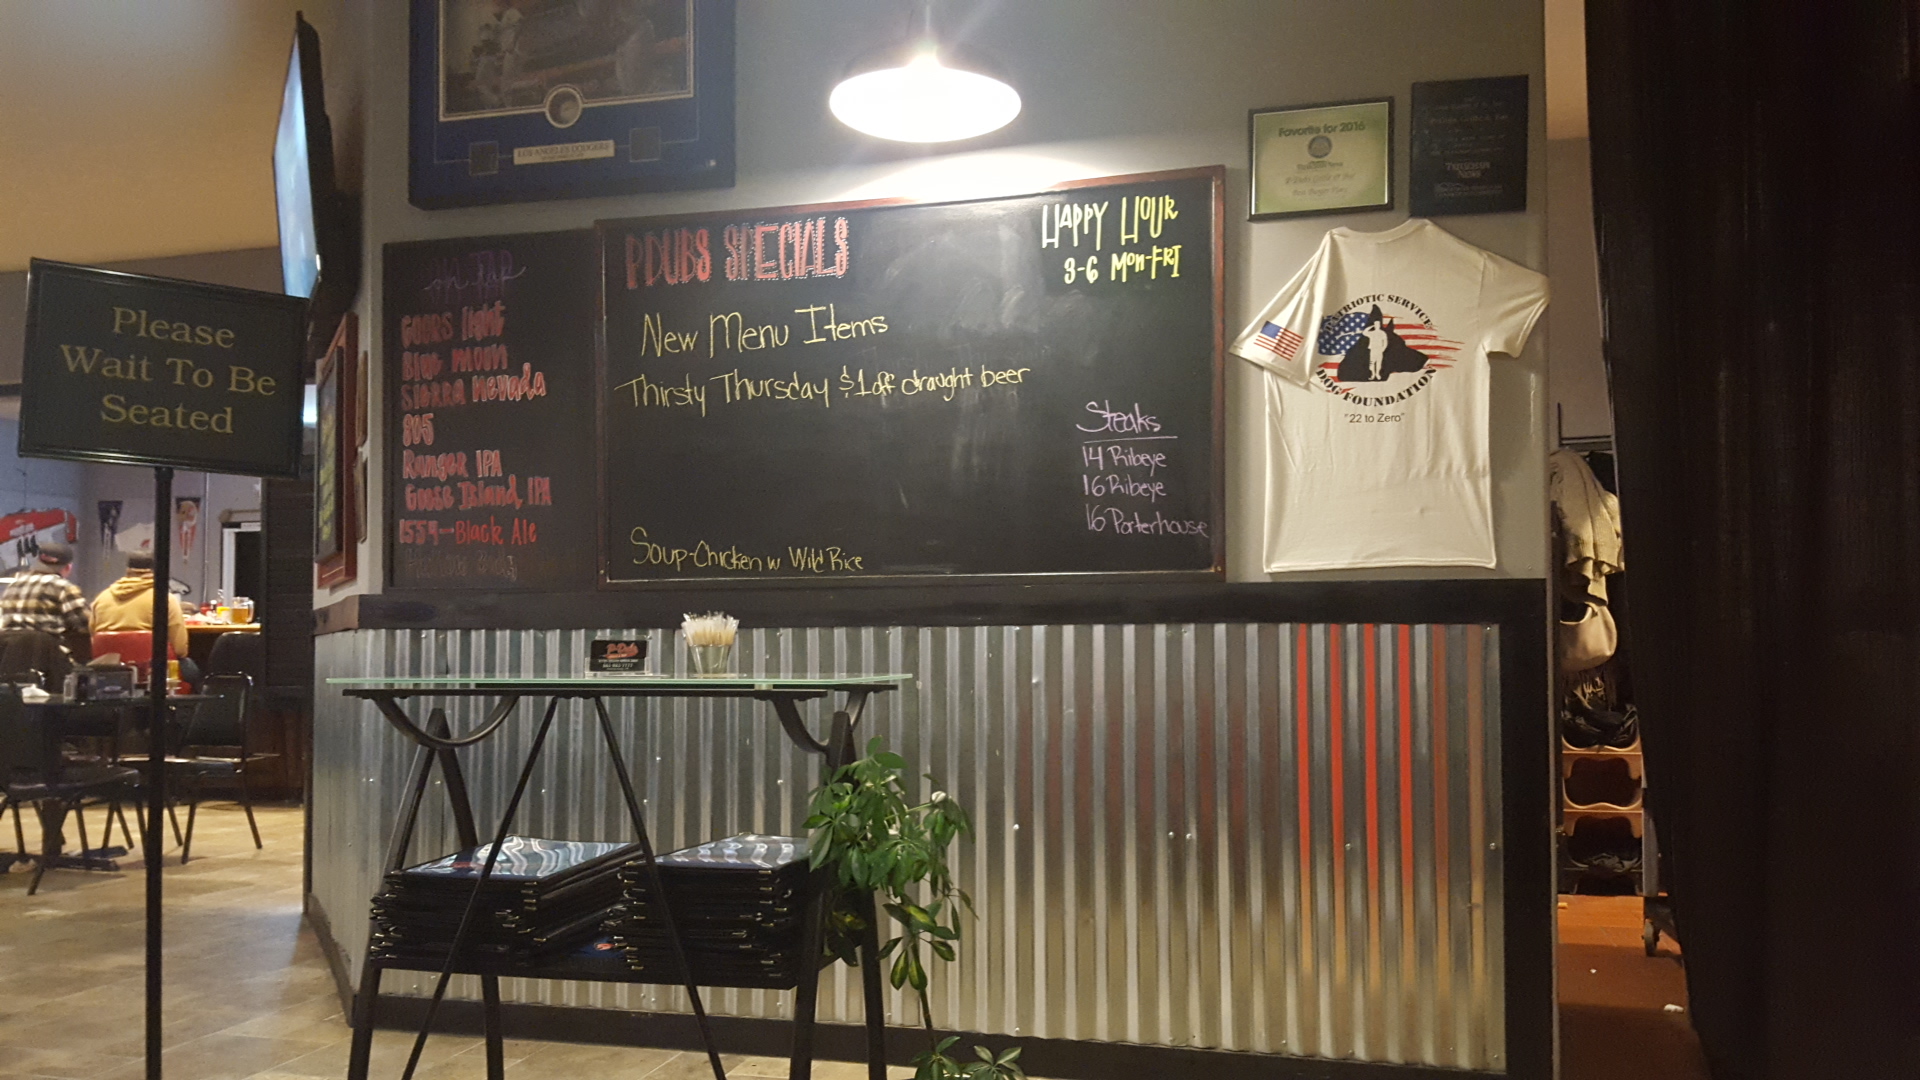 Please
Wait To Be
Seated
LOS ANGELES DODGERS
on TAP
COORS light
Blue moon
Sierra Nevada
805
Ranger IPA
Goose Island IPA
1554-Black Ale
P.DUBS SPECIALS
HAPPY HOUR
3-6 MON-FRI
New Menu Items
Thirsty Thursday $1off draught beer
Steaks
14 Ribeye
16 Ribeye
16 Porterhouse
Soup-Chicken w Wild Rice
Favorite for 2016
PATRIOTIC SERVICE
DOG FOUNDATION
"22 to Zero"